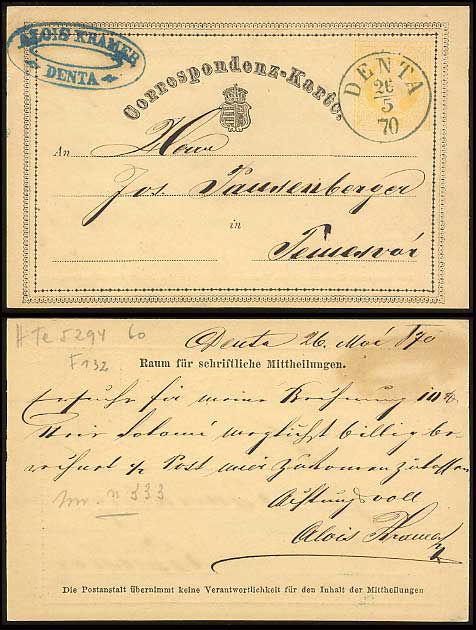 ALOIS KRAMER
DENTA
Correspondenz-Karte.
DENTA
26
5
70
An Herrn
Jos. Pausenberger
in
Temesvár
Te 5294 60
F 132
Denta 26. Mai 870
Raum für schriftliche Mittheilungen.
Ersuche für meine Rechnung 10
Salami möglichst billig be-
rechnet Post zukommen zu lassen
n 333
Achtungsvoll
Alois Kramer
Die Postanstalt übernimmt keine Verantwortlichkeit für den Inhalt der Mittheilungen